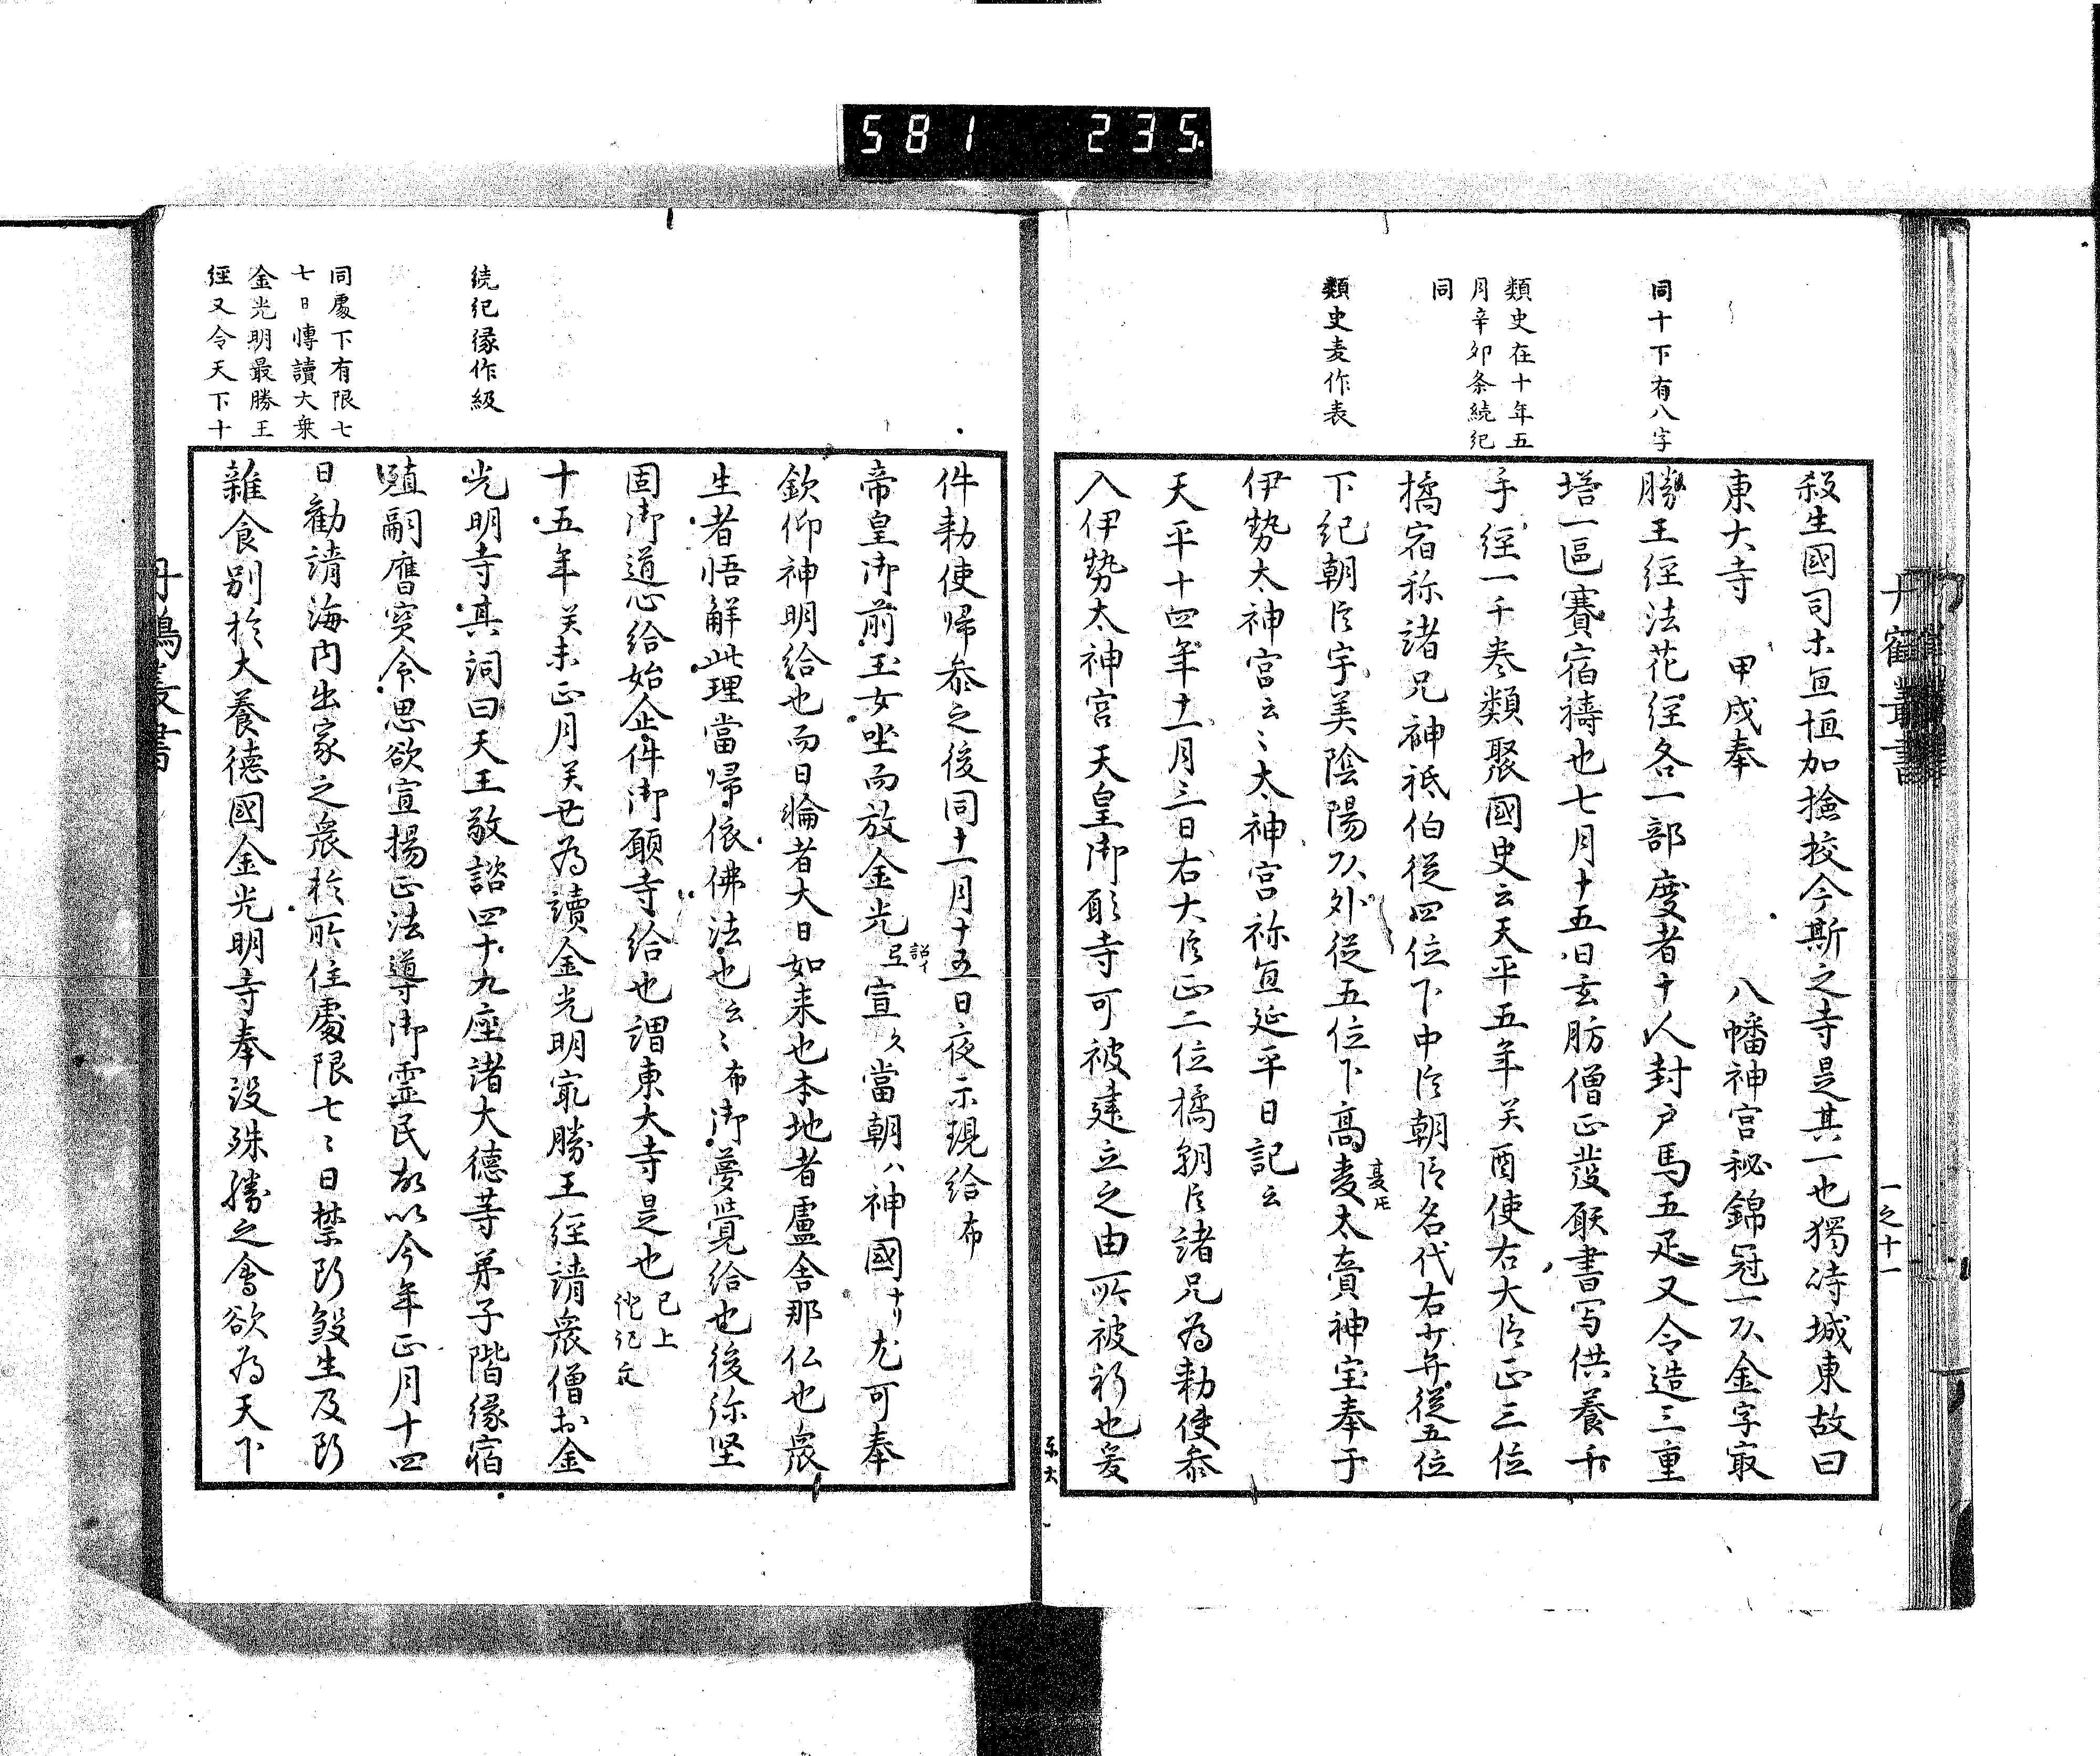 581 235
丹鶴叢書
一之十一
同十下有八字
類史在十年五
月辛卯条続紀
同
類史麦作表
殺生國司本宜恒加撿挍今斯之寺是其一也獨峙城東故曰
東大寺 甲戌奉 八幡神宮秘錦冠一以金字㝡
勝王経法花経各一部度者十人封戸馬五疋又令造三重
塔一區賽宿禱也七月十五日玄昉僧正発願書写供養千
手経一千巻類聚國史云天平五年癸酉使右大臣正三位
橘宿祢諸兄神祇伯従四位下中臣朝臣名代右少弁従五位
下紀朝臣宇美陰陽以外従五位下高麦太賷神宝奉于
伊勢太神宮云々太神宮祢宜延平日記云
天平十四年十一月三日右大臣正二位橘朝臣諸兄為勅使参
入伊勢太神宮天皇御願寺可被建立之由所被祈也爰
東大
続紀縁作級
同處下有限七
七日轉讀大乗
金光明最勝王
経又令天下十
件勅使帰参之後同十一月十五日夜示現給布
帝皇御前玉女坐而放金光弖宣久當朝ハ神國ナリ尤可奉
欽仰神明給也而日輪者大日如来也本地者盧舎那仏也衆
生者悟解此理當帰依佛法也云々布御夢覚給也後弥堅
固御道心給始企件御願寺給也謂東大寺是也已上
彼記文
十五年癸未正月癸丑為讀金光明㝡勝王経請衆僧於金
光明寺其詞曰天王敬諮四十九座諸大徳等弟子階縁宿
殖嗣膺宝命思欲宣揚正法導御霊民故以今年正月十四
日勧請海内出家之衆於所住處限七々日禁断殺生及断
雑食別於大養徳國金光明寺奉設殊勝之會欲為天下
丹鶴叢書